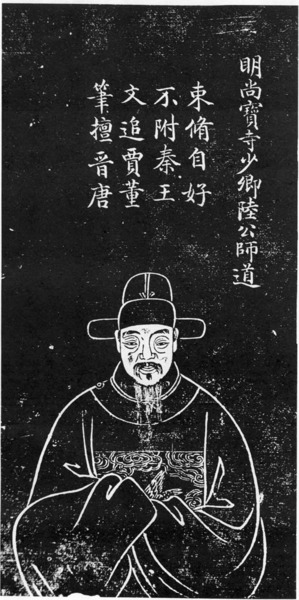 明尚寶寺少卿陸公師道
束脩自好
不附秦王
文追賈董
筆擅晉唐